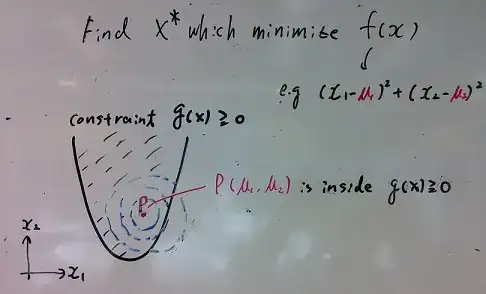 Find x* which minimize f(x)
e.g (x₁-μ₁)²+(x₂-μ₂)²
constraint g(x)≥0
P
P(μ₁,μ₂) is inside g(x)≥0
x₂
x₁